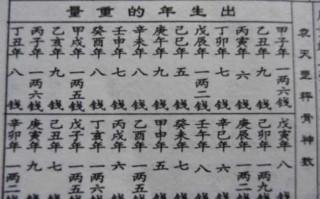 袁天罡秤骨神數
出生年的重量
甲子年 一两六錢
乙丑年 九錢
丙寅年 六錢
丁卯年 七錢
戊辰年 一两二錢
己巳年 五錢
庚午年 九錢
辛未年 八錢
壬申年 七錢
癸酉年 八錢
甲戌年 一两五錢
乙亥年 九錢
丙子年 一两六錢
丁丑年 八錢
戊寅年 八
己卯年 一两九
庚辰年 一两二
辛巳年 六
壬午年 八
癸未年 七
甲申年 五
乙酉年 一两五
丙戌年 六
丁亥年 一两六
戊子年 一两五
己丑年 七
庚寅年 九
辛卯年 一两二